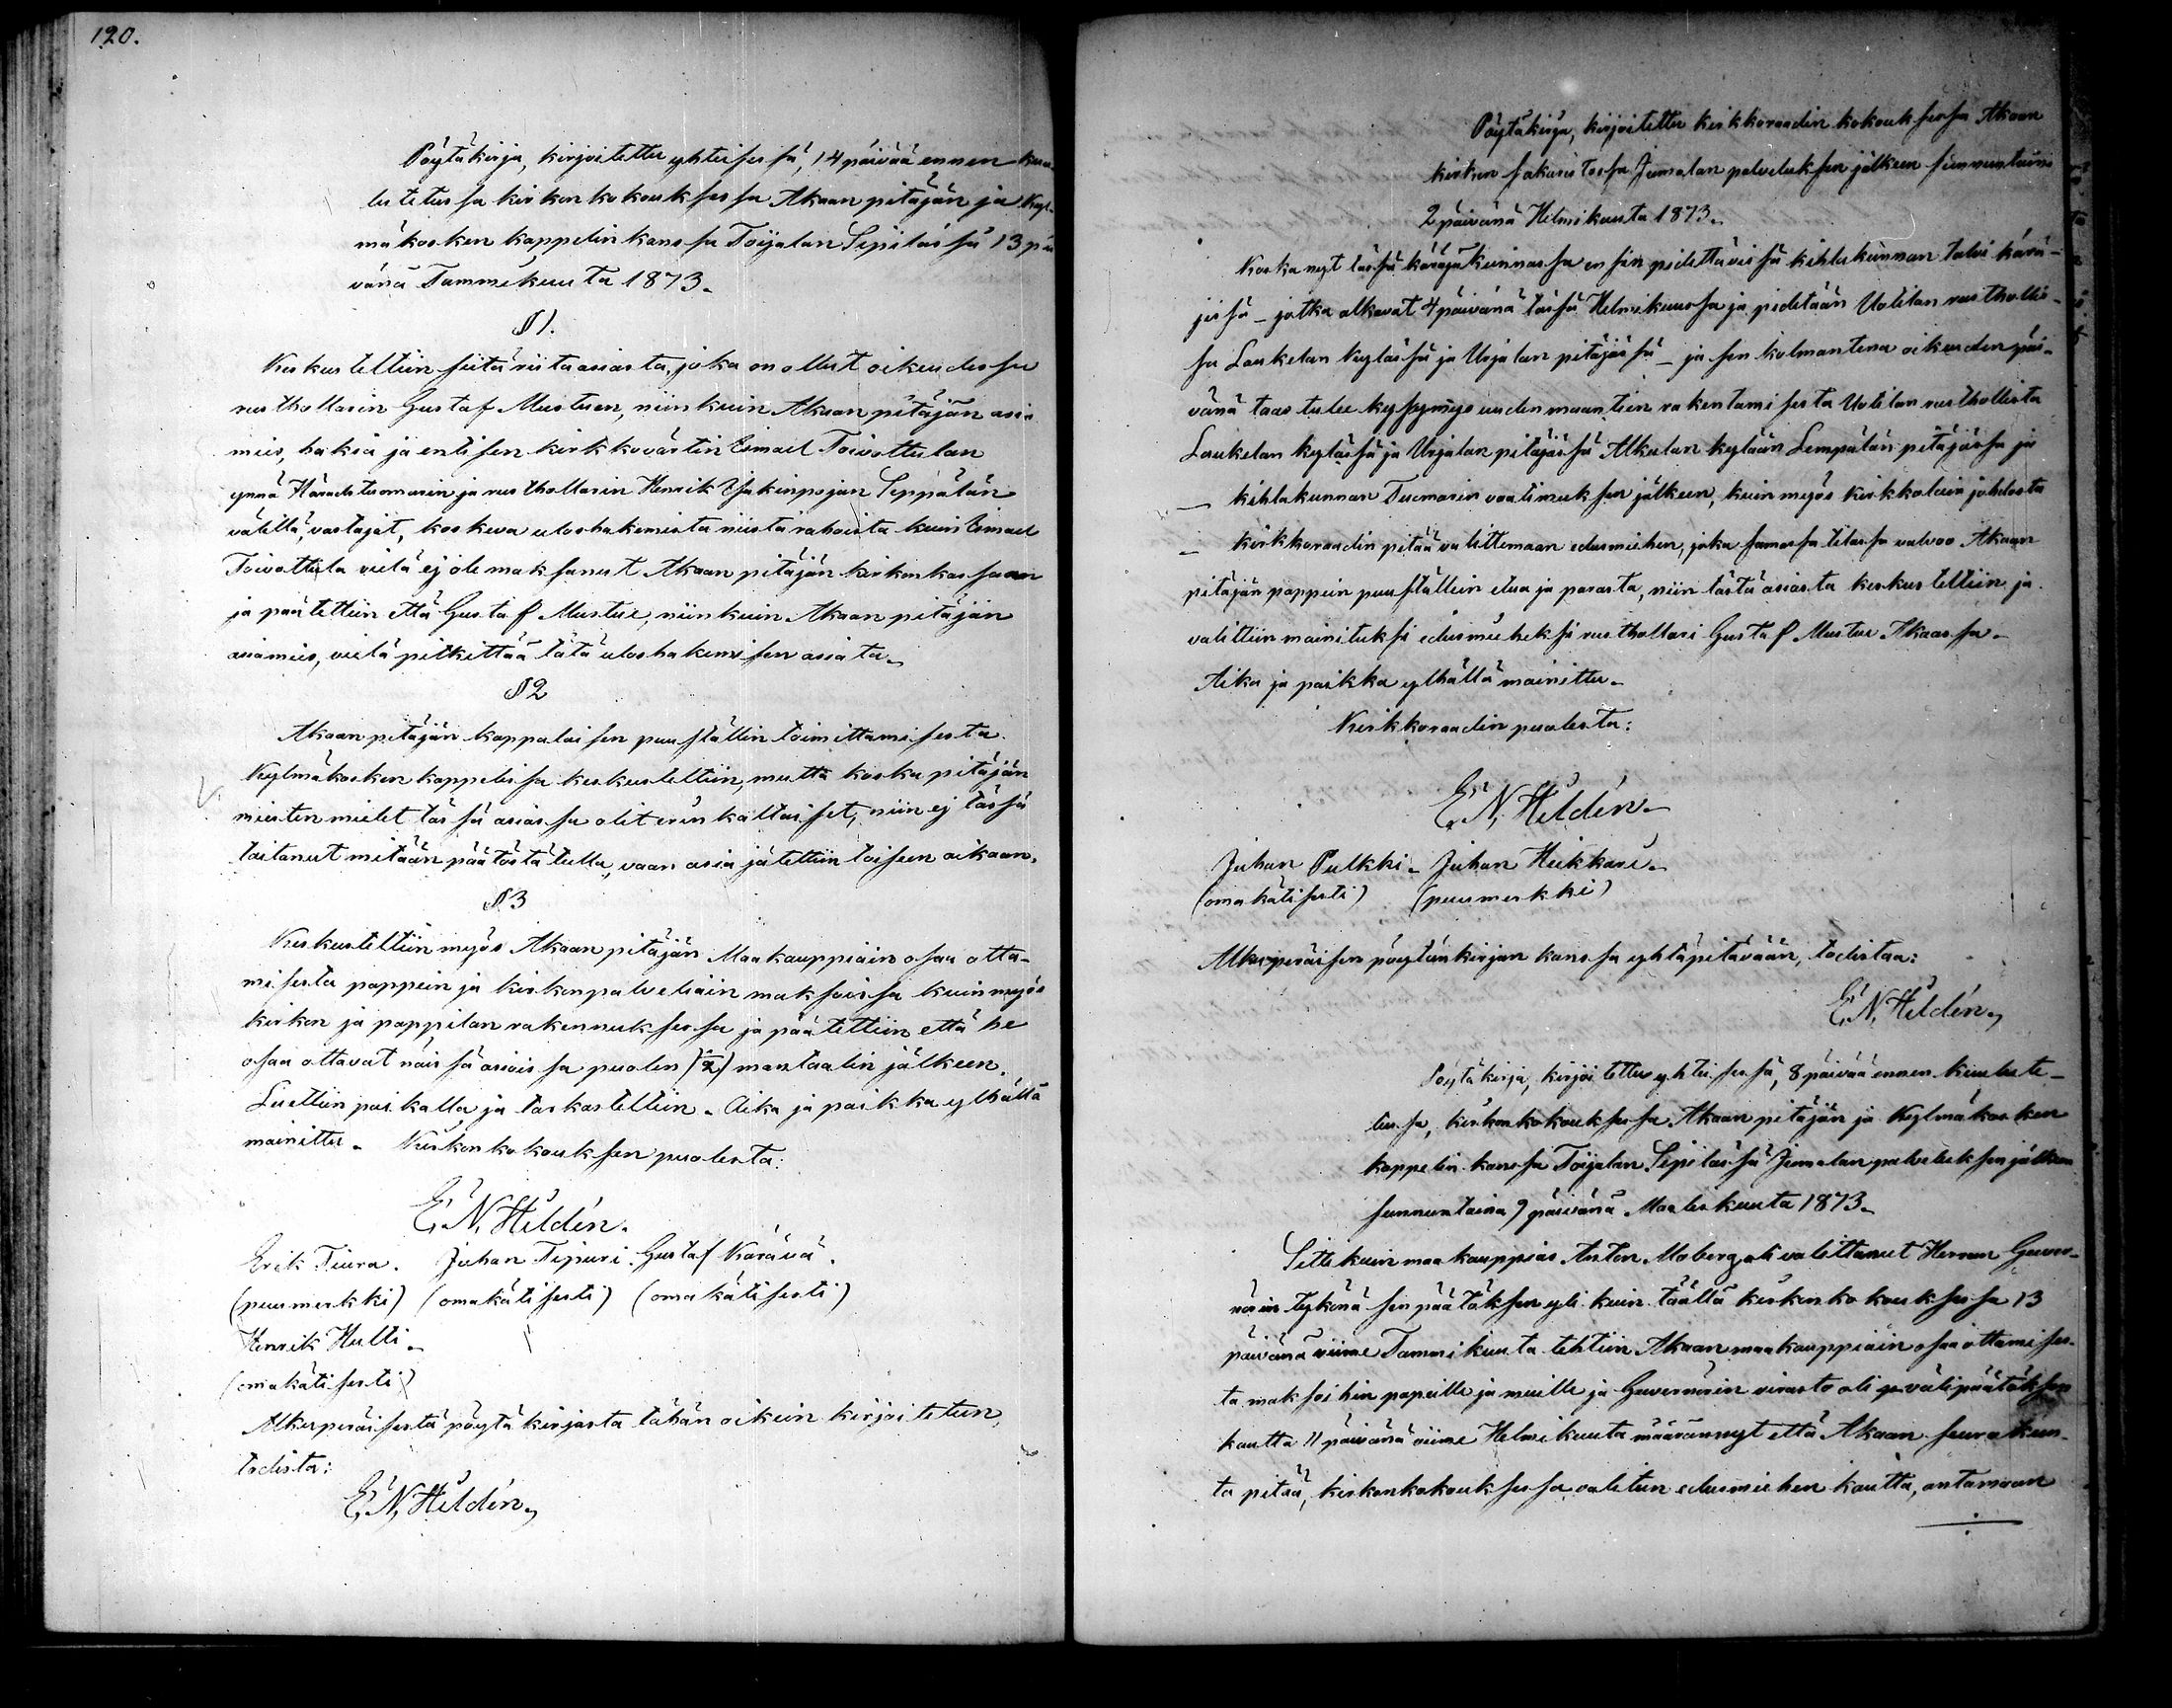 120.
Pöytäkirja, kirjoitettu yhteisessä, 14 päivää ennen kuu-
lutetussa kirkon kokouksessa Akaan pitäjän ja Kyl-
mäkosken kappelin kanssa Toijalan Sipilässä 13 päi
vänä Tammikuuta 1873.
§ 1.
Keskusteltiin siitä riita asiasta, joka on ollut oikeudessa
rusthollarin Gustaf Mustuen, niinkuin Akaan pitäjän asia
mies, hakia ja entisen kirkkovärstin Esmael Toivottulan
ynnä Häradstuomarin ja rusthollarin Henrik Isakinpojan Seppälän
välillä, vastajat, koskeva uloshakemista niistä rahoista kuin Esmael
Toivottula vielä ej ole maksanut Akaan pitäjän kirkon kassaan
ja päätettiin että Gustaf Mustue, niinkuin Akaan pitäjän
asiamies, vielä pitkittää tätä uloshakemisen asiata.
§ 2
Akaan pitäjän kappalaisen puuställin toimittamisesta
Kylmäkosken kappelissa keskusteltiin, mutta koska pitäjän
miesten mielet tässä asiassa olit erin kaltaiset, niin ej tässä
taitanut mitään päätöstä tulla, vaan asia jätettiin toiseen aikaan.
§ 3
Keskusteltiin myös Akaan pitäjän Maakauppiain osaa otta-
misesta pappein ja kirkonpalveliain maksoissa kuin myös
kirkon ja pappilan rakennuksessa ja päätettiin että he
osaa ottavat näissä asioissa puolen (½) mantaalin jälkeen.
Luettiin paikalla ja tarkasteltiin. Aika ja paikka ylhällä
mainittu. Kirkon kokouksen puolesta:
E. N. Hildén.
Erik Tiura. Juhan Tipuri. Gustaf Kärävä.
(puumerkki) (omakätisesti) (omakätisesti)
Henrik Hulli.
(omakätisesti)
Alkuperäisestä pöytäkirjasta tähän oikein kirjoitetun,
todista:
E. N. Hildén,
Pöytäkirja, kirjoitettu kirkkoraadin kokouksessa Akaan
kirkon sakaristossa Jumalan palveluksen jälkeen sunnuntaina
2 päivänä Helmikuuta 1873.
Koska nyt tässä käräjäkunnassa ensin pidettävissä kihlakunnan talvi kärä-
jissä – jotka alkavat 4 päivänä tässä Helmikuussa ja pidetään Uotilan rustholis-
sa Laukelan kylässä ja Urjalan pitäjässä – ja sen kolmantena oikeuden päi-
vänä taas tulee kysymys uuden maantien rakentamisesta Uotilan rusthollista
Laukelan kylässä ja Urjalan pitäjässä Alkulan kylään Lempälän pitäjässä ja
– kihlakunnan Tuomarin vaatimuksen jälkeen, kuin myös kirkkolain johdosta
– kirkkoraadin pitää valittemaan edusmiehen, joka samassa tilassa valvoo Akaan
pitäjän pappein puuställein etua ja parasta, niin tästä asiasta keskusteltiin ja
valittiin mainituksi edusmieheksi rusthollari Gustaf Mustue Akaassa.
Aika ja paikka ylhällä mainittu.
Kirkkoraadin puolesta:
E. N. Hildén.
Juhan Pulkki. Juhan Heikkari.
(omakätisesti) (puumerkki)
Alkuperäisen pöytänkirjan kanssa yhtäpitävään, todistaa:
E. N. Hildén,
Pöytäkirja, kirjoitettu yhteisessä, 8 päivää ennen kuulute-
tussa, kirkonkokouksessa Akaan pitäjän ja Kylmäkosken
kappelin kanssa Toijalan Sipilässä Jumalan palveluksen jälkeen
sunnuntaina 9 päivänä Maaliskuuta 1873.
Sitte kuin maakauppias Anton Moberg oli valittanut Herran Guver-
nörin tykönä sen päätöksen yli kuin täällä kirkonkokouksessa 13
päivänä viime Tammikuuta tehtiin Akaan maakauppiain osaaottamises-
ta maksoihin papeille ja muille ja Guvernörin virasto oli välipäätöksen
kautta 11 päivänä viime Helmikuuta määrännyt että Akaan seurakun-
ta pitää, kirkonkokouksessa valitun edusmiehen kautta, antamaan